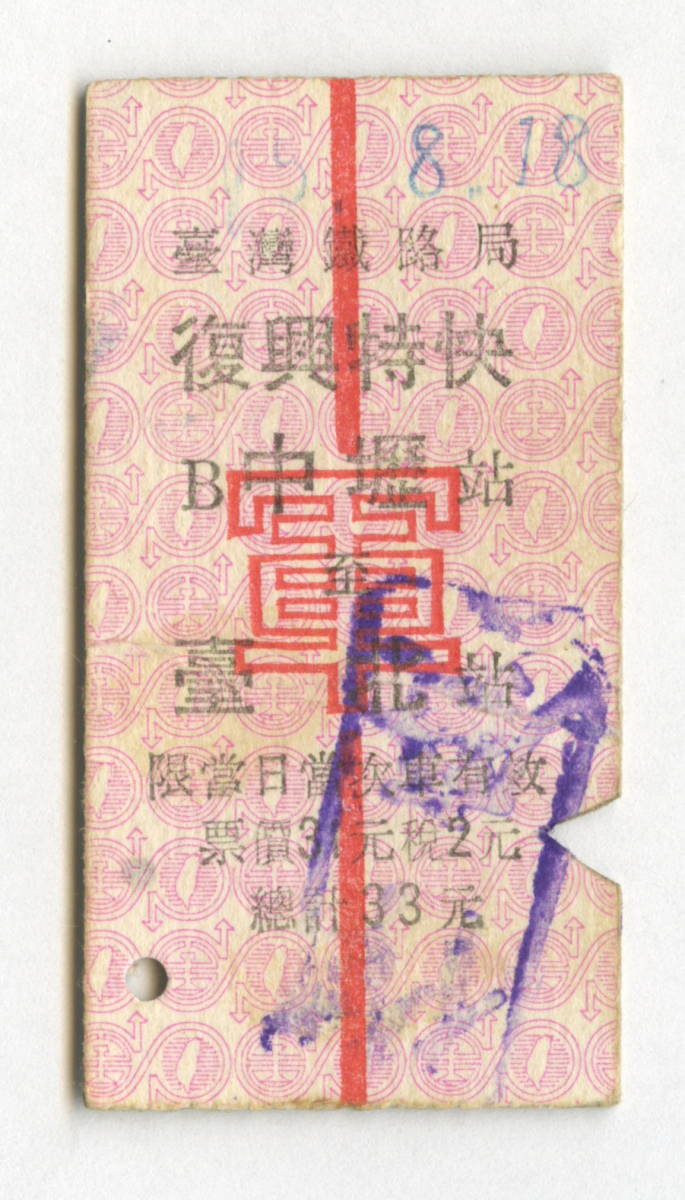 5. 8. 18
臺灣鐵路局
復興特快
B中壢站
至
臺北站
軍
限當日當次車有效
票價31元稅2元
總計33元